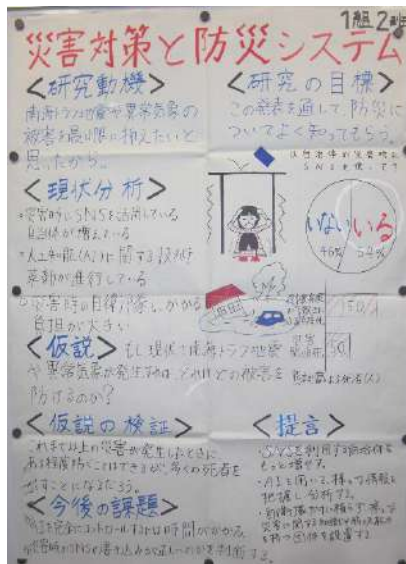 1組2班
災害対策と防災システム
<研究動機>
南海トラフ地震や異常気象の
被害を最小限に抑えたいと
思ったから。
<研究の目標>
この発表を通して、防災に
ついてよく知ってもらう。
<現状分析>
災害時にSNSを活用している
自治体が増えている
人工知能(AI)に関する技術
革新が進行している
災害時の自衛隊にかかる
負担が大きい
いない
46%
いる
54%
<仮説>
もし現代で南海トラフ地震
や異常気象が発生すれば、どれほどの被害を
防げるのか?
<仮説の検証>
これまで以上の災害が発生したときに、
ある程度防ぐことはできるが、多くの死者を
出すことになるだろう。
<今後の課題>
災害時のSNSの書き込みが正しいのかを判断する。
<提言>
・SNSを利用する自治体を
もっと増やす。
・AIを用いて様々な情報を
把握し分析する。
を持つ団体を設置する